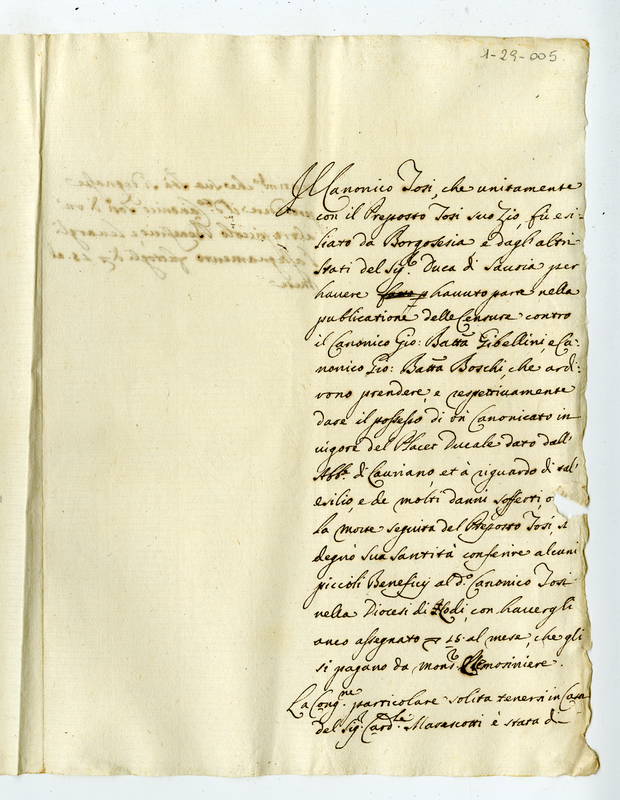 1-29-005
Il Canonico Tosi, che unitamente
con il Preposto Tosi suo Zio, fù esi-
liato da Borgosesia e dagli altri
stati del Sig.r Duca di Savoia per
havere havuto parte nella
publicatione delle Censure contro
il Canonico Gio: Batta Gibellini, e Ca-
nonico Gio: Batta Boschi, che ardi-
rono prendere, e respettivamente
dare il possesso di un Canonicato in
vigore del Placet Ducale dato dall'
Abb.e di Cavriano, et à riguardo di tal'
esilio, e de molti danni sofferti, o
la morte seguita del Preposto Tosi, si
degnò sua santità conferire alcuni
piccoli Beneficij al d.o Canonico Tosi
nella Diocesi di Lodi, con havergli
anco assegnato al mese, che gli
si pagano da mons.r Elemosiniere.
La Cong.ne particolare solita tenersi in Casa
del Sig.r Card.le Marescotti è stata di